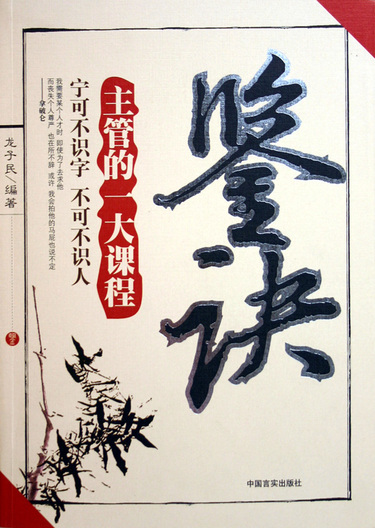 鉴诀
主管的一大课程
宁可不识字 不可不识人
我需要某个人才时 即使为了去求他
而丧失个人尊严 也在所不辞 或许 我会拍他的马屁也说不定
——拿破仑
龙子民/编著
中国言实出版社